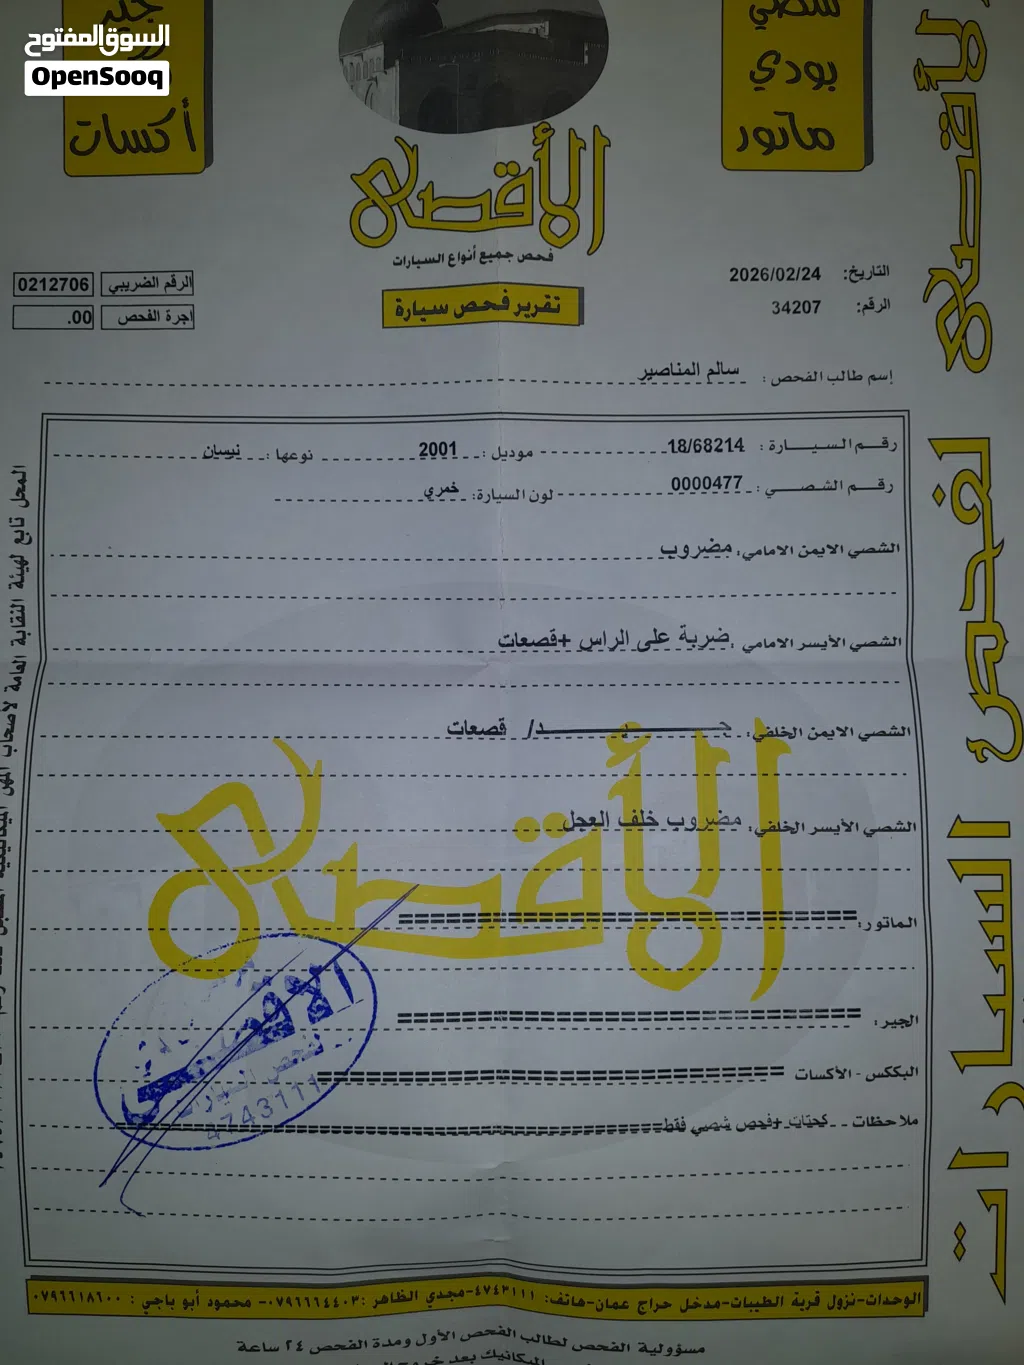 السوق المفتوح
OpenSooq
جير
أكسات
شصي
بودي
ماتور
الأقصى
فحص جميع أنواع السيارات
تقرير فحص سيارة
التاريخ: 2026/02/24
الرقم: 34207
الرقم الضريبي 0212706
اجرة الفحص .00
إسم طالب الفحص: سالم المناصير
رقم السيارة: 18/68214 موديل: 2001 نوعها: نيسان
رقم الشصي: 0000477 لون السيارة: خمري
الشصي الايمن الامامي: مضروب
الشصي الأيسر الامامي: ضربة على الراس +قصعات
الشصي الايمن الخلفي: جيد/ قصعات
الشصي الأيسر الخلفي: مضروب خلف العجل
الأقصى
الماتور:
الجير:
البككس - الأكسات
ملاحظات - كحتات +فحص شصي فقط
الأقصى
لفحص السيارات
4743111
الوحدات-نزول قرية الطيبات-مدخل حراج عمان-هاتف: ٤٧٤٣١١١-مجدي الظاهر: ٠٧٩٦٦٦٤٤٠٣- محمود أبو باجي: ٠٧٩٦٦١٨٦٠٠
مسؤولية الفحص لطالب الفحص الأول ومدة الفحص ٢٤ ساعة
الميكانيك بعد خروج
الأقصى لفحص السيارات
المحل تابع لهيئة النقابة العامة لأصحاب المهن الميكانيكية